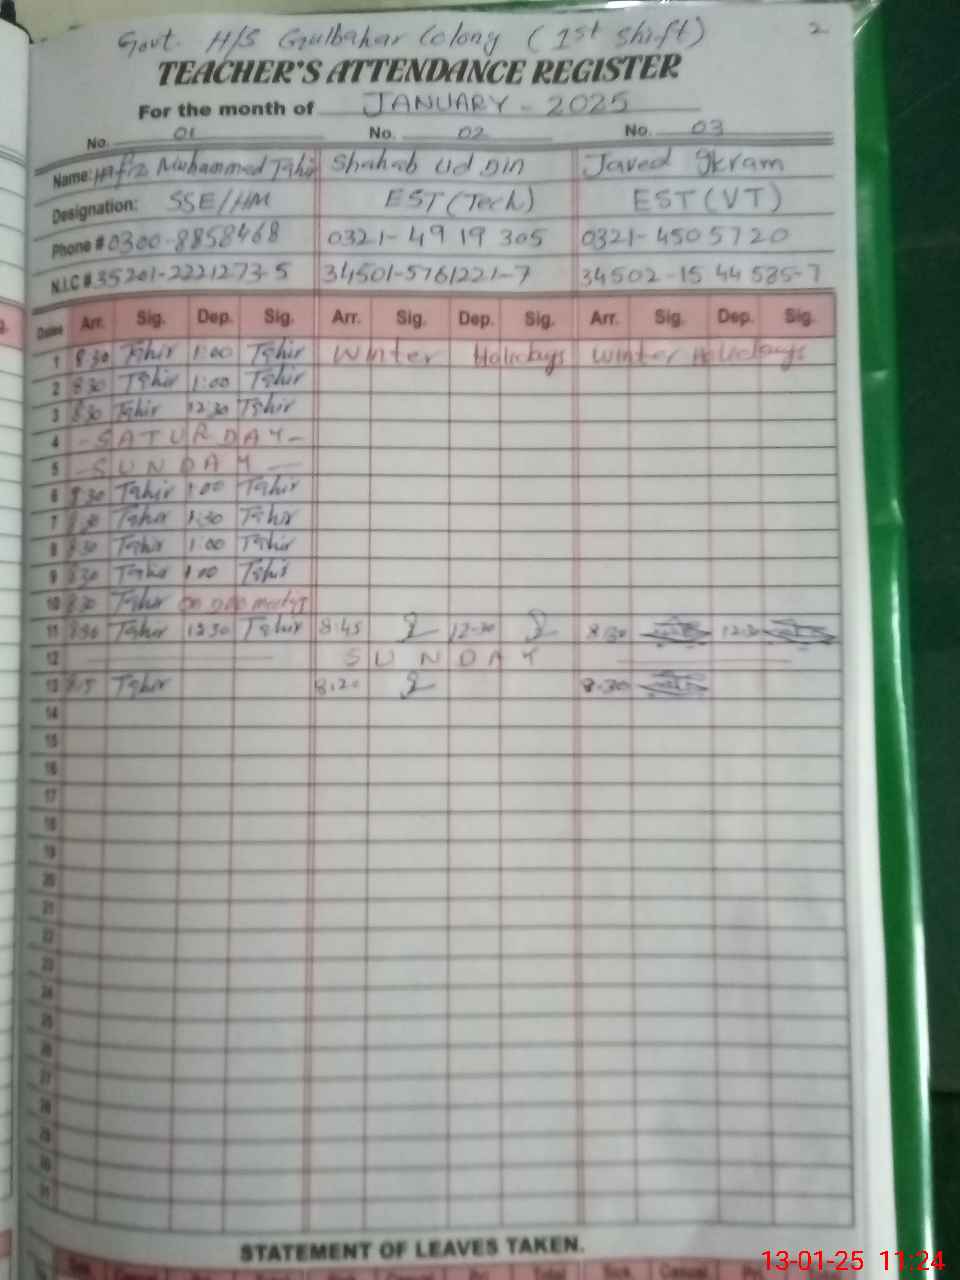 Govt. H/S Gulbahar Colony (1st Shift) 2
TEACHER'S ATTENDANCE REGISTER
For the month of JANUARY - 2025
No. 01 No. 02 No. 03
Name: Hafiz Muhammad Tahir Shahab ud Din Javed Ikram
Designation: SSE/HM EST (Tech) EST (VT)
Phone # 0300-8858468 0321-4919305 0321-4505720
N.I.C #. 35201-2221273-5 34501-5761221-7 34502-1544585-7
Dates Arr. Sig. Dep. Sig. Arr. Sig. Dep. Sig. Arr. Sig. Dep. Sig.
1 8:30 Tahir 1:00 Tahir Winter Holidays Winter Holidays
2 8:30 Tahir 1:00 Tahir
3 8:30 Tahir 12:30 Tahir
4 - SATURDAY -
5 - SUNDAY -
6 8:30 Tahir 1:00 Tahir
7 8:30 Tahir 1:30 Tahir
8 8:30 Tahir 1:00 Tahir
9 8:30 Tahir 1:00 Tahir
10 8:30 Tahir
11 8:30 Tahir 12:30 Tahir 8:45 12:30 8:30 12:30
12 SUNDAY
13 8:15 Tahir 8:20 8:30
14
15
16
17
18
19
20
21
22
23
24
25
26
27
28
29
30
31
STATEMENT OF LEAVES TAKEN.
13-01-25 11:24